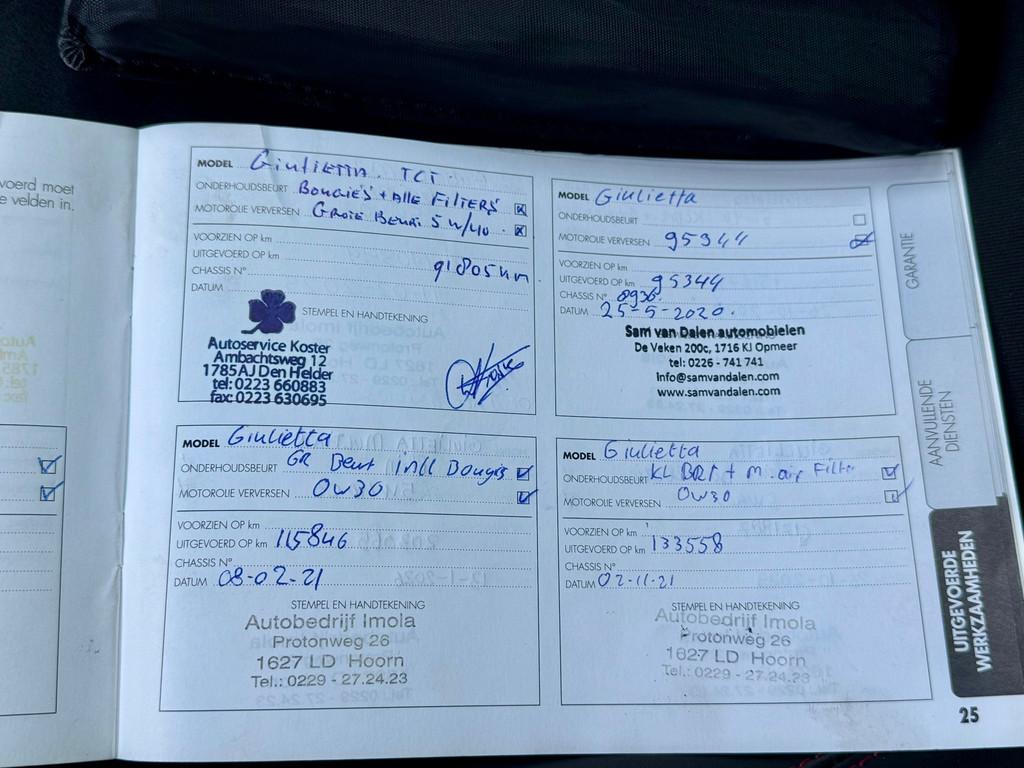 voerd moet
e velden in.
MODEL Giulietta TCT
ONDERHOUDSBEURT Bougie's + Alle Filters
MOTOROLIE VERVERSEN Grote Beurt 5W/40
VOORZIEN OP km
UITGEVOERD OP km 91805km
CHASSIS N°
DATUM
STEMPEL EN HANDTEKENING
Autoservice Koster
Ambachtsweg 12
1785 AJ Den Helder
tel: 0223 660883
fax: 0223 630695
MODEL Giulietta
ONDERHOUDSBEURT
MOTOROLIE VERVERSEN 95344
VOORZIEN OP km
UITGEVOERD OP km 95344
CHASSIS N°
DATUM 25-5-2020.
Sam van Dalen automobielen
De Veken 200c, 1716 KJ Opmeer
tel: 0226 - 741 741
Info@samvandalen.com
www.samvandalen.com
MODEL Giulietta
ONDERHOUDSBEURT GR Beurt inkl Bougis
MOTOROLIE VERVERSEN 0W30
VOORZIEN OP km
UITGEVOERD OP km 115846
CHASSIS N°
DATUM 08-02-21
STEMPEL EN HANDTEKENING
Autobedrijf Imola
Protonweg 26
1627 LD Hoorn
Tel.: 0229 - 27.24.23
MODEL Giulietta
ONDERHOUDSBEURT KL BRT + M. air Filter
MOTOROLIE VERVERSEN 0W30
VOORZIEN OP km
UITGEVOERD OP km 133558
CHASSIS N°
DATUM 02-11-21
STEMPEL EN HANDTEKENING
Autobedrijf Imola
Protonweg 26
1627 LD Hoorn
Tel.: 0229 - 27.24.23
GARANTIE
AANVULLENDE
DIENSTEN
UITGEVOERDE
WERKZAAMHEDEN
25